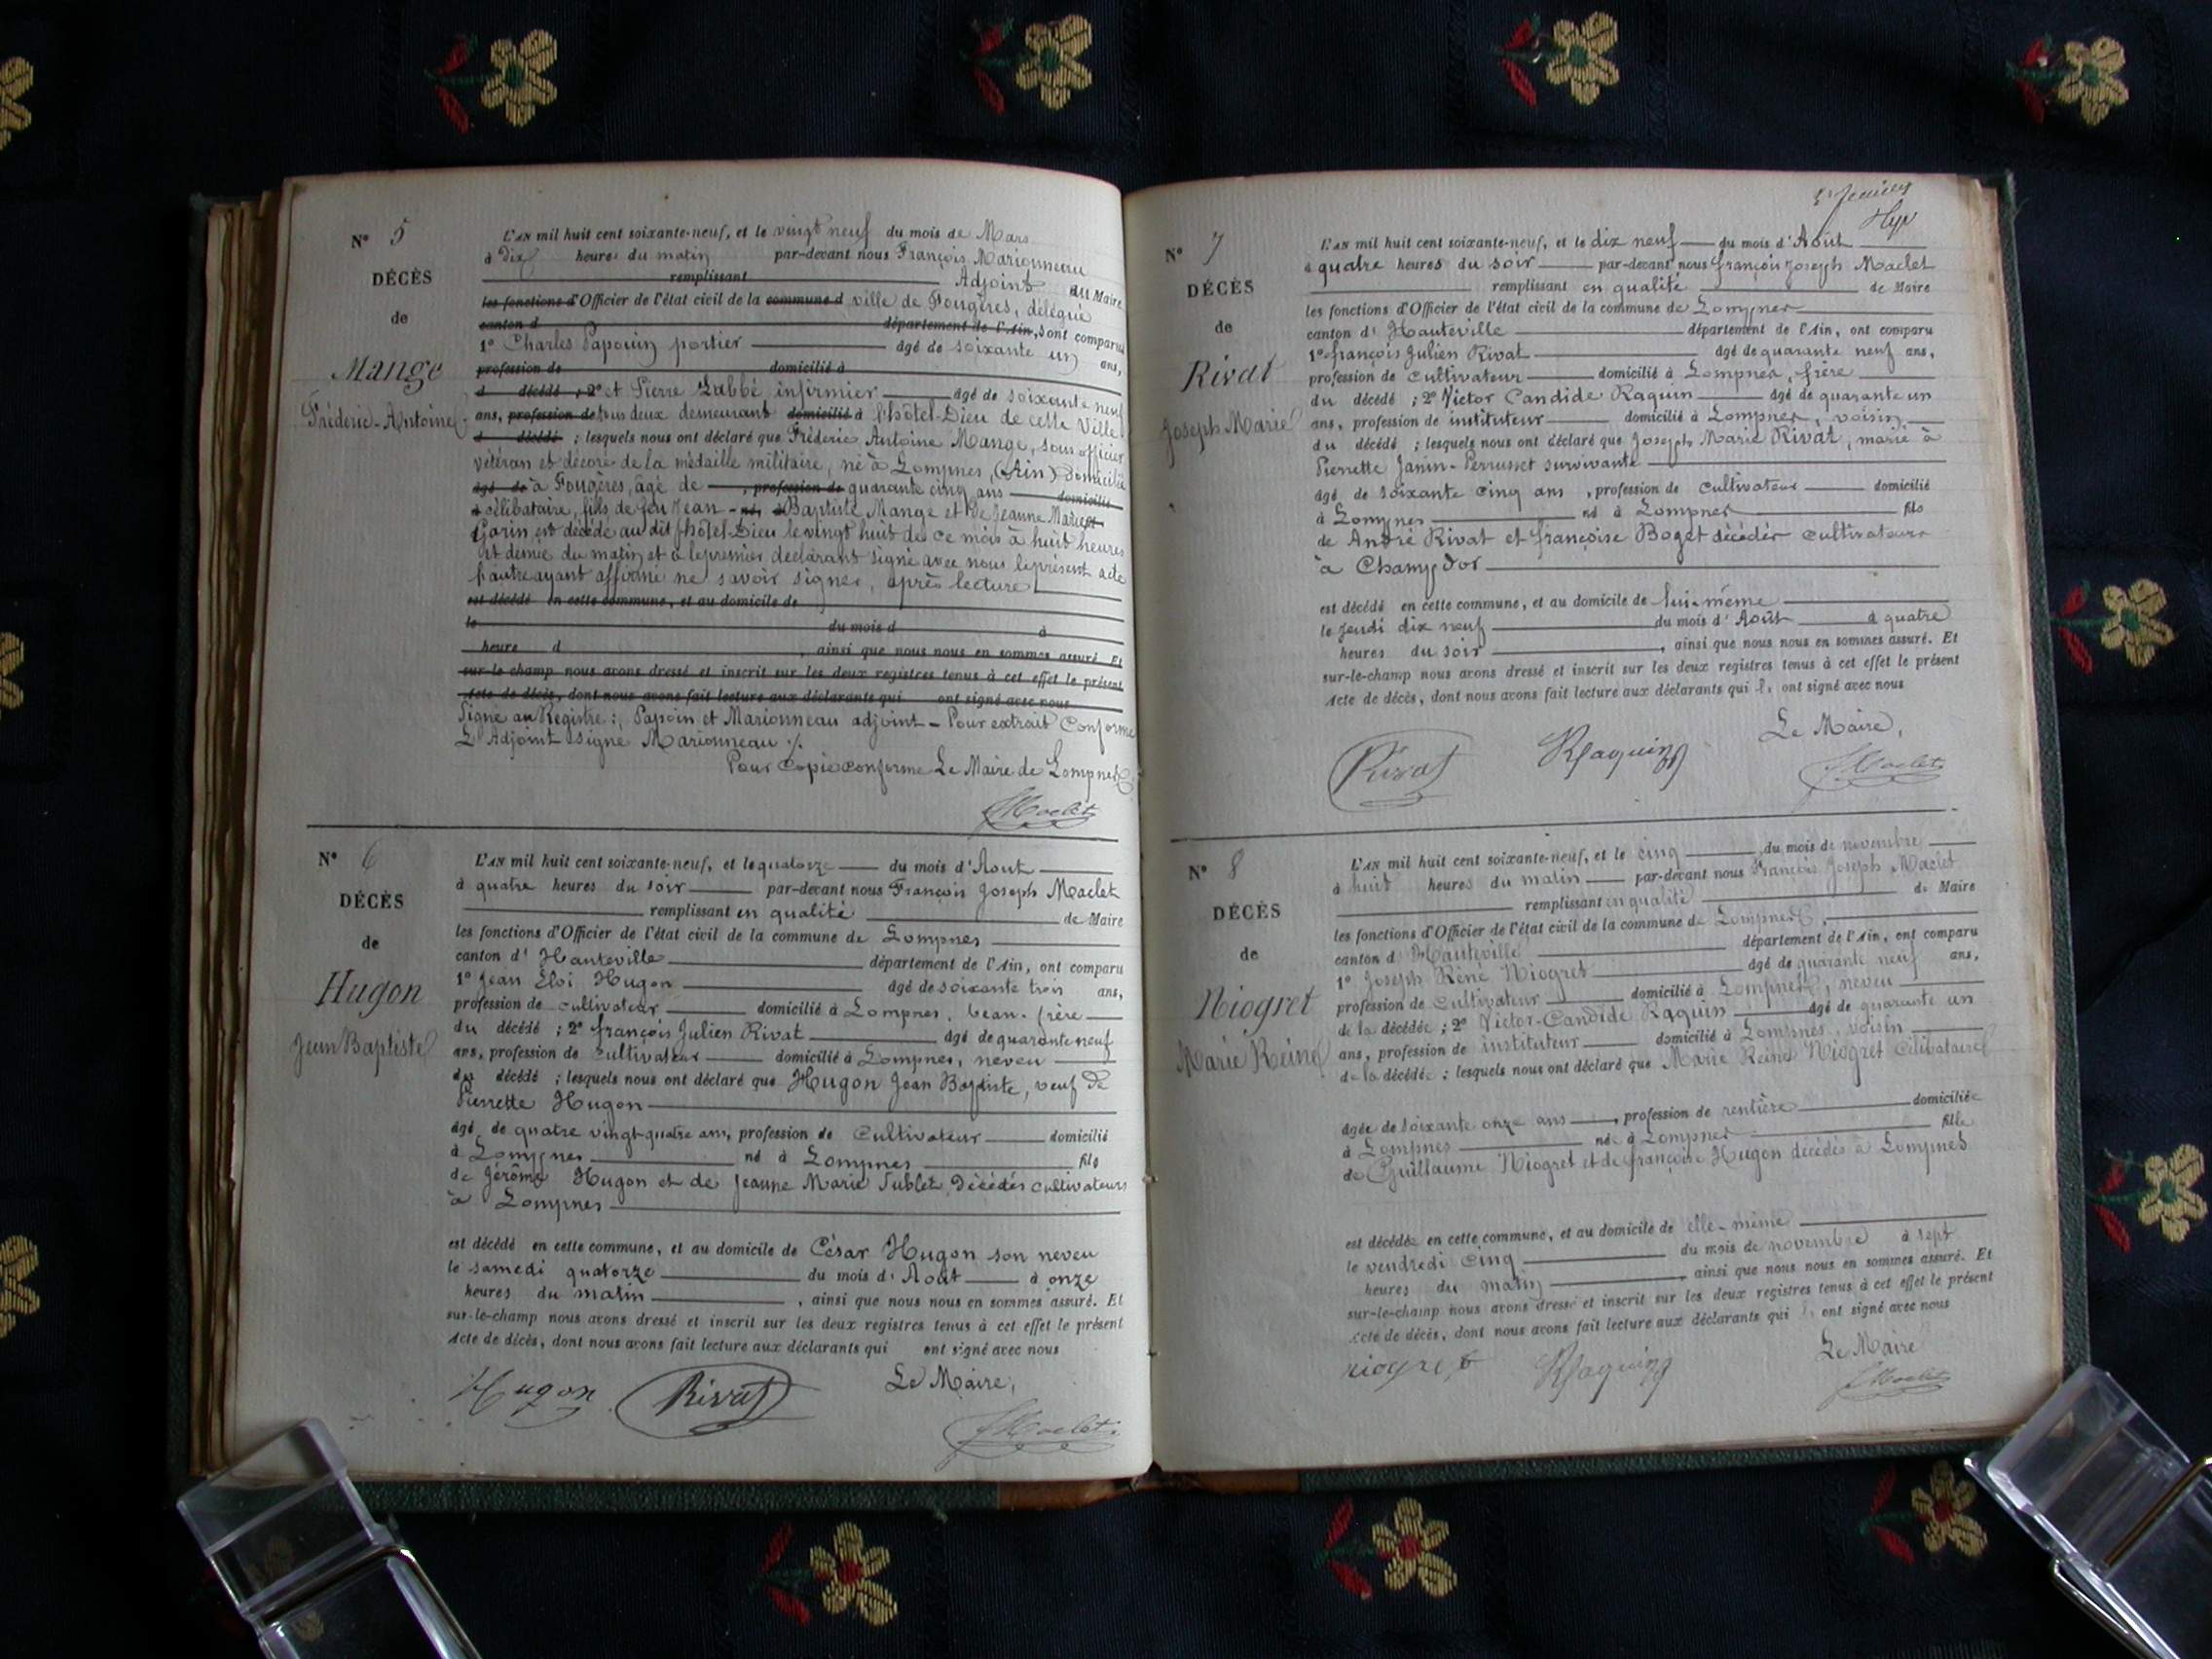 N° 5
DÉCÈS
de
Mange
Fréderic-Antoine
L'AN mil huit cent soixante-neuf, et le vingt neuf du mois de Mars
à Dix heures du matin par-devant nous François Marionneau
remplissant Adjoint au Maire
les fonctions d'Officier de l'état civil de la commune d ville de Fougères, délégué
canton d département de l'Ain, sont comparus
1° Charles Papouin portier âgé de soixante un ans,
profession de domicilié à
d décédé ; 2° et Pierre Labbé infirmier âgé de soixante neuf
ans, profession de tous deux demeurant domicilié à l'hôtel-Dieu de cette Ville
d décédé ; lesquels nous ont déclaré que Fréderic Antoine Mange, sous officier
vétéran et décoré de la médaille militaire, né à Lompnes, (Ain) domicilié
âgé de à Fougères, âgé de , profession de quarante cinq ans domicilié
à célibataire, fils de feu Jean - né, à Baptiste Mange et de Jeanne Marie
Gorin est décédé au dit hôtel-Dieu le vingt huit de ce mois à huit heures
et demie du matin et a le premier déclarant signé avec nous le présent acte
l'autre ayant affirmé ne savoir signer, après lecture
est décédé en cette commune, et au domicile de
le du mois d à
heure d , ainsi que nous nous en sommes assuré. Et
sur-le-champ nous avons dressé et inscrit sur les deux registres tenus à cet effet le présent
Acte de décès, dont nous avons fait lecture aux déclarants qui ont signé avec nous
Signé au Registre : Papoin et Marionneau adjoint - Pour extrait Conforme
L'Adjoint signé Marionneau ./.
Pour Copie conforme Le Maire de Lompnes
Maclet
N° 6
DÉCÈS
de
Hugon
Jean Baptiste
L'AN mil huit cent soixante-neuf, et le quatorze du mois d'Aout
à quatre heures du soir par-devant nous François Joseph Maclet
remplissant en qualité de Maire
les fonctions d'Officier de l'état civil de la commune de Lompnes
canton d'Hauteville département de l'Ain, ont comparu
1° Jean Eloi Hugon âgé de soixante trois ans,
profession de cultivateur domicilié à Lompnes, beau-frère
du décédé ; 2° françois Julien Rivat âgé de quarante neuf
ans, profession de cultivateur domicilié à Lompnes, neveu
du décédé ; lesquels nous ont déclaré que Hugon Jean Baptiste, veuf de
Pierrette Hugon
âgé de quatre vingt-quatre ans, profession de Cultivateur domicilié
à Lompnes né à Lompnes fils
de Jérôme Hugon et de Jeanne Marie Tublet, Décédés cultivateurs
à Lompnes
est décédé en cette commune, et au domicile de César Hugon son neveu
le samedi quatorze du mois d'Août à onze
heures du matin , ainsi que nous nous en sommes assuré. Et
sur-le-champ nous avons dressé et inscrit sur les deux registres tenus à cet effet le présent
Acte de décès, dont nous avons fait lecture aux déclarants qui ont signé avec nous
Le Maire,
Hugon Rivat
Maclet
N° 7
DÉCÈS
de
Rivat
Joseph Marie
L'AN mil huit cent soixante-neuf, et le dix neuf du mois d'Août
à quatre heures du soir par-devant nous françois Joseph Maclet
remplissant en qualité de Maire
les fonctions d'Officier de l'état civil de la commune de Lompnes
canton d'Hauteville département de l'Ain, ont comparu
1° françois Julien Rivat âgé de quarante neuf ans,
profession de cultivateur domicilié à Lompnes, frère
du décédé ; 2° Victor Candide Raquin âgé de quarante un
ans, profession de instituteur domicilié à Lompnes, voisin
du décédé ; lesquels nous ont déclaré que Joseph Marie Rivat, marié à
Pierrette Janin-Perrusset survivante
âgé de soixante cinq ans , profession de cultivateur domicilié
à Lompnes né à Lompnes fils
de André Rivat et françoise Boget décédés cultivateurs
à Champdor
est décédé en cette commune, et au domicile de lui-même
le jeudi dix neuf du mois d'Août à quatre
heures du soir , ainsi que nous nous en sommes assuré. Et
sur-le-champ nous avons dressé et inscrit sur les deux registres tenus à cet effet le présent
Acte de décès, dont nous avons fait lecture aux déclarants qui ont signé avec nous
Le Maire,
Rivat Raquin
Maclet
N° 8
DÉCÈS
de
Niogret
Marie Reine
L'AN mil huit cent soixante-neuf, et le cinq du mois de novembre
à huit heures du matin par-devant nous François Joseph Maclet
remplissant en qualité de Maire
les fonctions d'Officier de l'état civil de la commune de Lompnes,
canton d'Hauteville département de l'Ain, ont comparu
1° Joseph Réné Niogret âgé de quarante neuf ans,
profession de Cultivateur domicilié à Lompnes, neveu
de la décédée ; 2° Victor-Candide Raquin âgé de quarante un
ans, profession de instituteur domicilié à Lompnes, voisin
de la décédée ; lesquels nous ont déclaré que Marie Reine Niogret Célibataire
âgée de soixante onze ans , profession de rentière domiciliée
à Lompnes née à Lompnes fille
de Guillaume Niogret et de françoise Hugon décédés à Lompnes
est décédée en cette commune, et au domicile de elle-même
le vendredi cinq du mois de novembre à sept
heures du matin , ainsi que nous nous en sommes assuré. Et
sur-le-champ nous avons dressé et inscrit sur les deux registres tenus à cet effet le présent
Acte de décès, dont nous avons fait lecture aux déclarants qui ont signé avec nous
Le Maire
niogret Raquin
Maclet